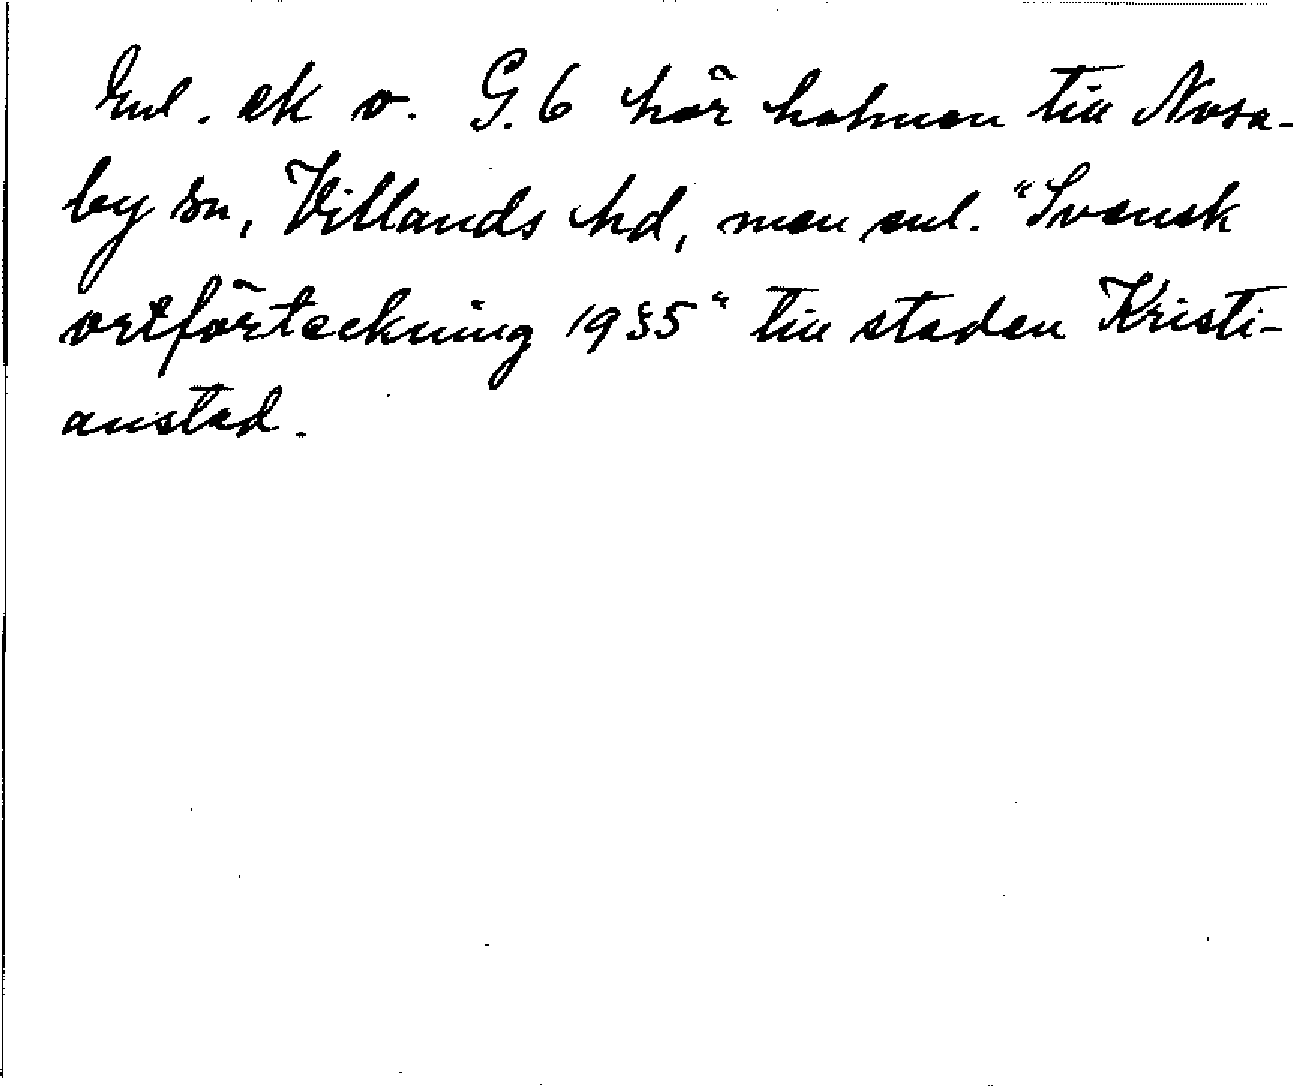 Enl. ek o. G. 6 hör holmen till Nosa-
by sn, Villands hd, men enl. "Svensk
ortförteckning 1935" till staden Kristi-
anstad.